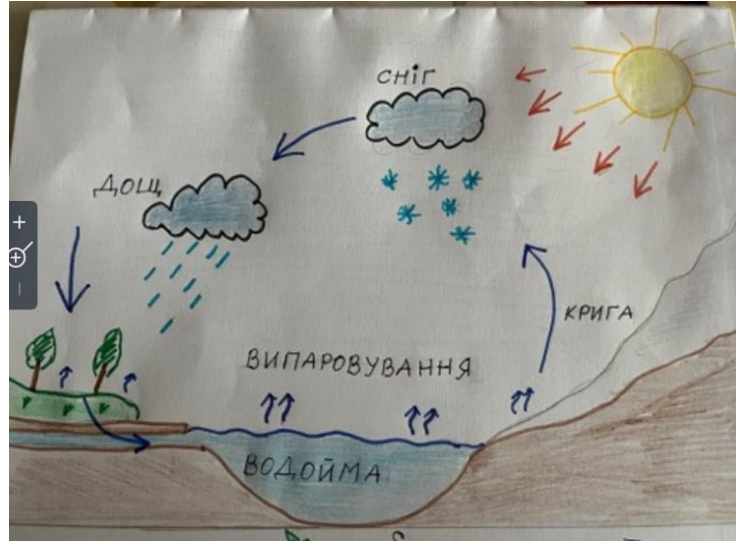 СНІГ
ДОЩ
КРИГА
ВИПАРОВУВАННЯ
ВОДОЙМА